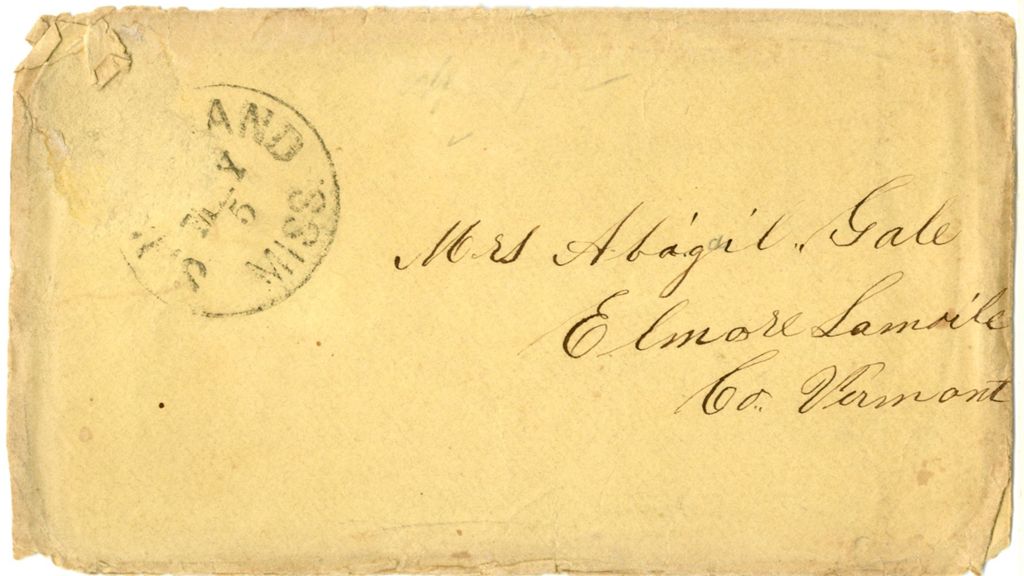 AND
MISS
5
Mrs Abagail Gale
Elmore Lamoile
Co. Vermont